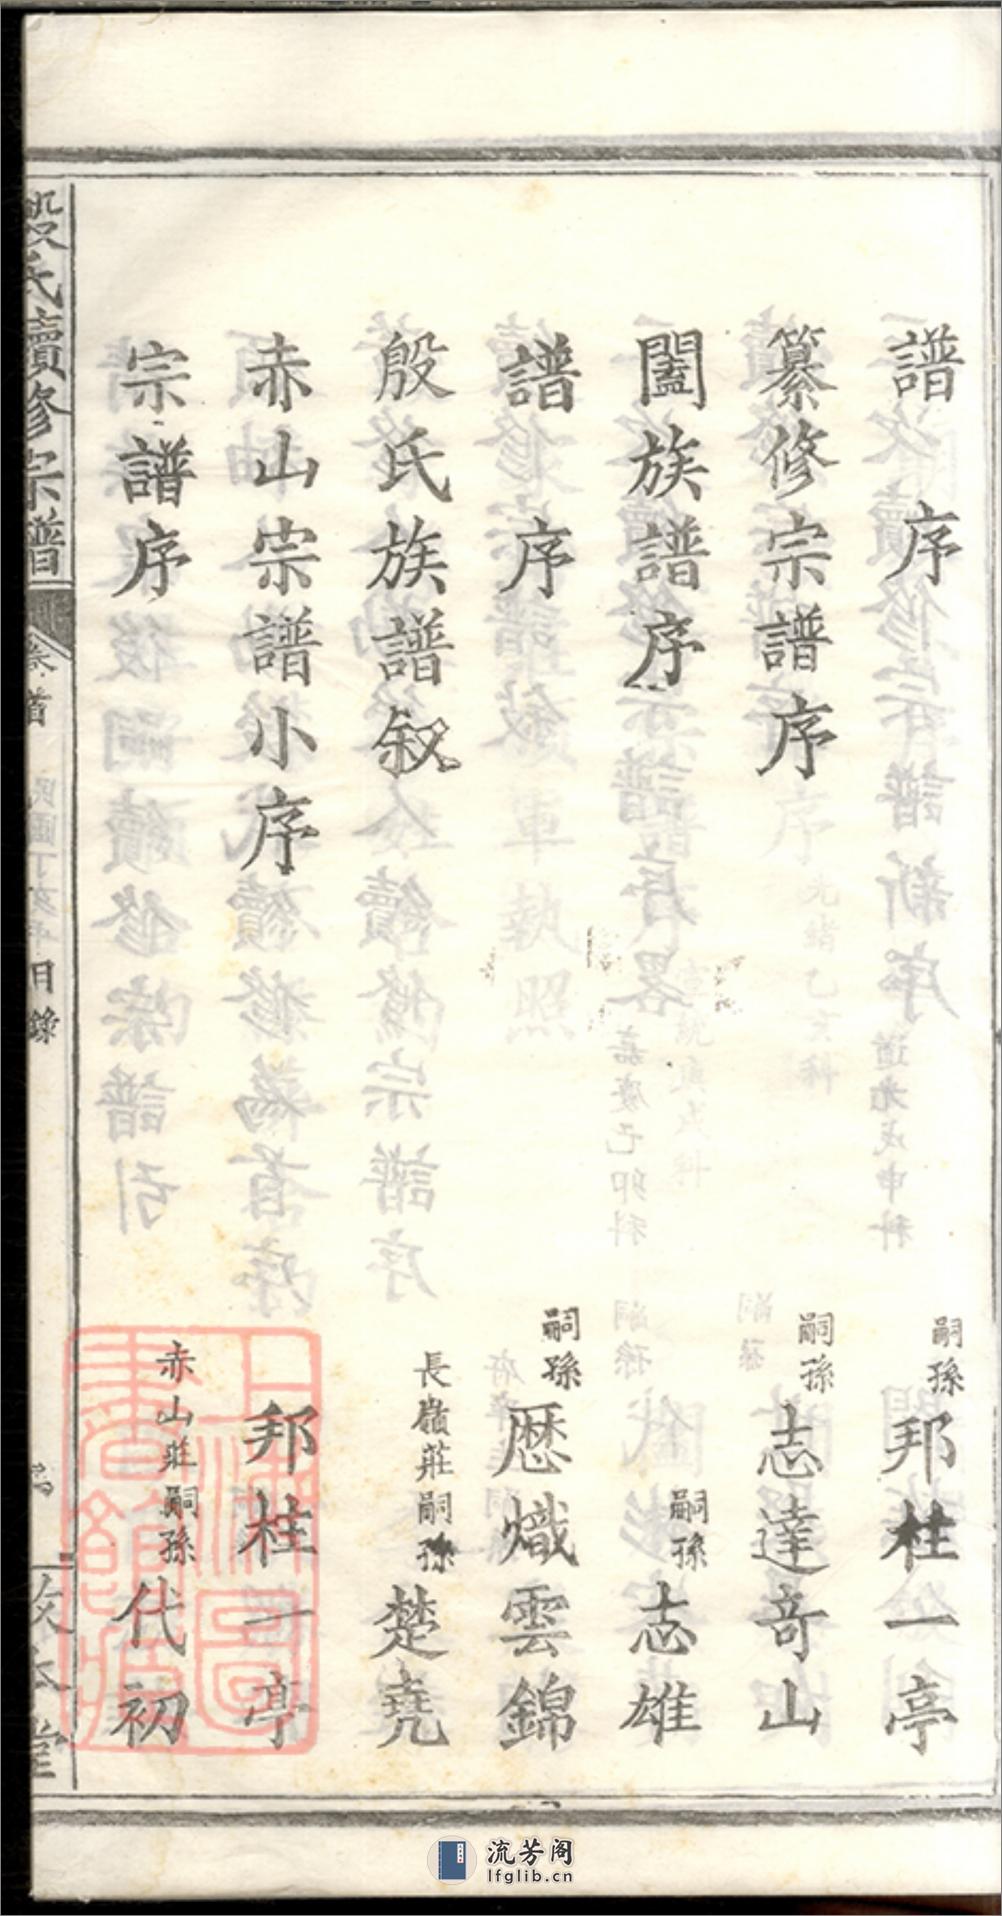 譜序 嗣孫邦柱一亭
纂修宗譜序 嗣孫志達奇山
闔族譜序 嗣孫志雄
譜序 嗣孫歴熾雲錦
殷氏族譜叙 長嶺莊嗣孫楚堯
赤山宗譜小序 邦柱一亭
宗譜序 赤山莊嗣孫代初
殷氏續修宗譜 卷首 民國丁亥年 目錄 堂
上海圖書館藏
流芳阁
lfglib.cn